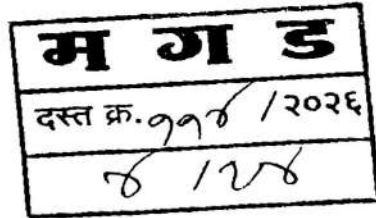 म ग ड
दस्त क्र. ११४ / २०२६
४ / २४